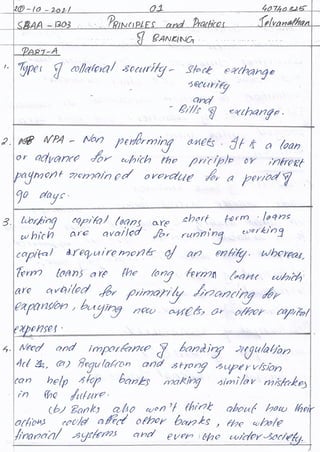 20-10-2021 01 40740225
SBAA-1303 PRINCIPLES and Practices Selvanathan
of BANKING
PART-A
1. Types of collateral security - Stock exchange
security
and
- Bills of exchange.
2. NPA - Non performing assets. It is a loan
or advance for which the priciple or intrest
payment remained overdue for a period of
90 days.
3. Working capital loans are short term loans
which are availed for running working
capital requirements of an entity. whereas,
Term loans are the long terms loans which
are availed for primarily financing for
expansion, buying new assets, or other capital
expenses.
4. Need and importance of banking regulation
Act is, (a) Regulation and strong supervision
can help stop banks making similar mistakes
in the future.
(b) Banks also won't think about how their
actions could affect other banks, the whole
financial systems and even the wider society.